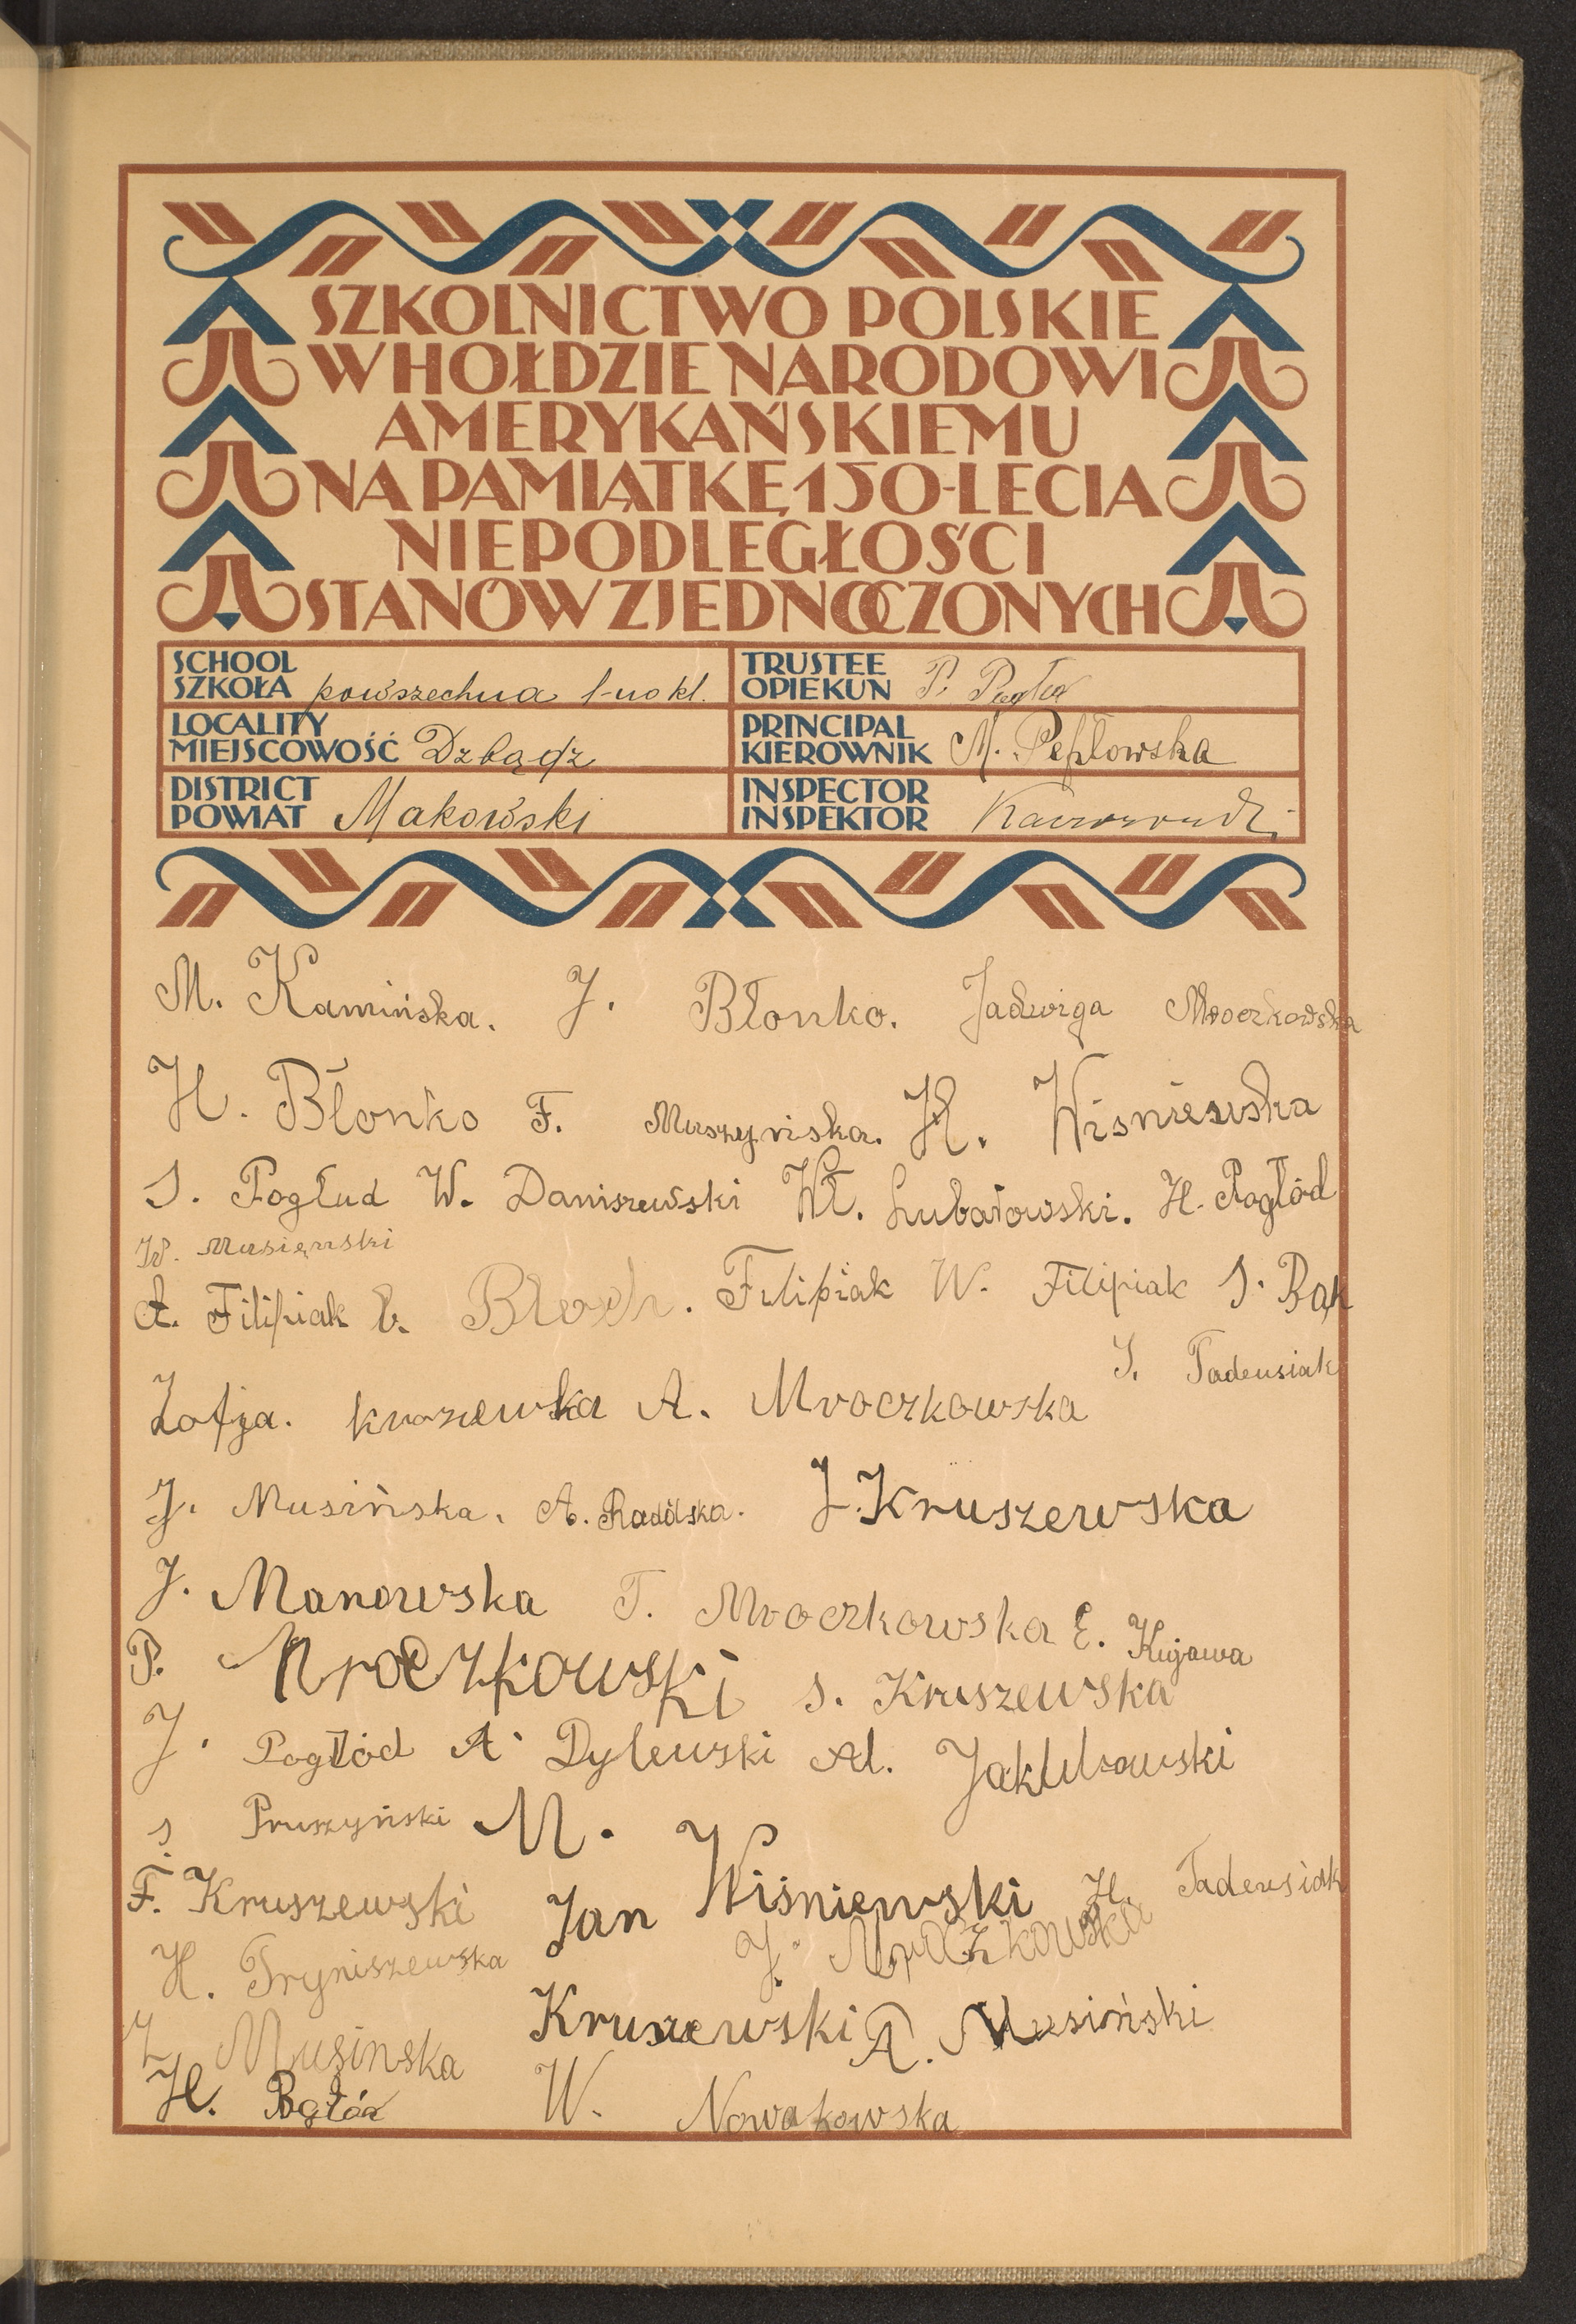 SZKOLNICTWO POLSKIE
W HOŁDZIE NARODOWI
AMERYKAŃSKIEMU
NA PAMIĄTKĘ 150-LECIA
NIEPODLEGŁOŚCI
STANÓW ZJEDNOCZONYCH
SCHOOL
SZKOŁA powszechna 1-no kl.
TRUSTEE
OPIEKUN P.
LOCALITY
MIEJSCOWOŚĆ Dzbądz
PRINCIPAL
KIEROWNIK M. Pepłowska
DISTRICT
POWIAT Makowski
INSPECTOR
INSPEKTOR
M. Kamińska. J. Błonko. Jadwiga Mroczkowska
H. Błonko F. Muszyńska. H. Wisniewska
S. Pogłud W. Daniszewski Wł. Lubatowski. H. Pogłód
W. Musieński
A. Filipiak B. Filipiak W. Filipiak S. Bąk
S. Tadeusiak
Zofja. kruszewska A. Mroczkowska
J. Musińska. A. Radólska. J. Kruszewska
J. Manowska T. Mroczkowska E. Kujawa
P. Mroczkowski S. Kruszewska
J. Pogłód A. Dylewski Al. Jakubowski
S. Pruszyński M. Wiśniewski H. Tadeusiak
F. Kruszewski Jan Kruszewski
H. Tryniszewska J. Mroczkowska
Z Musinska A. Musiński
H. Pogłód W. Nowakowska